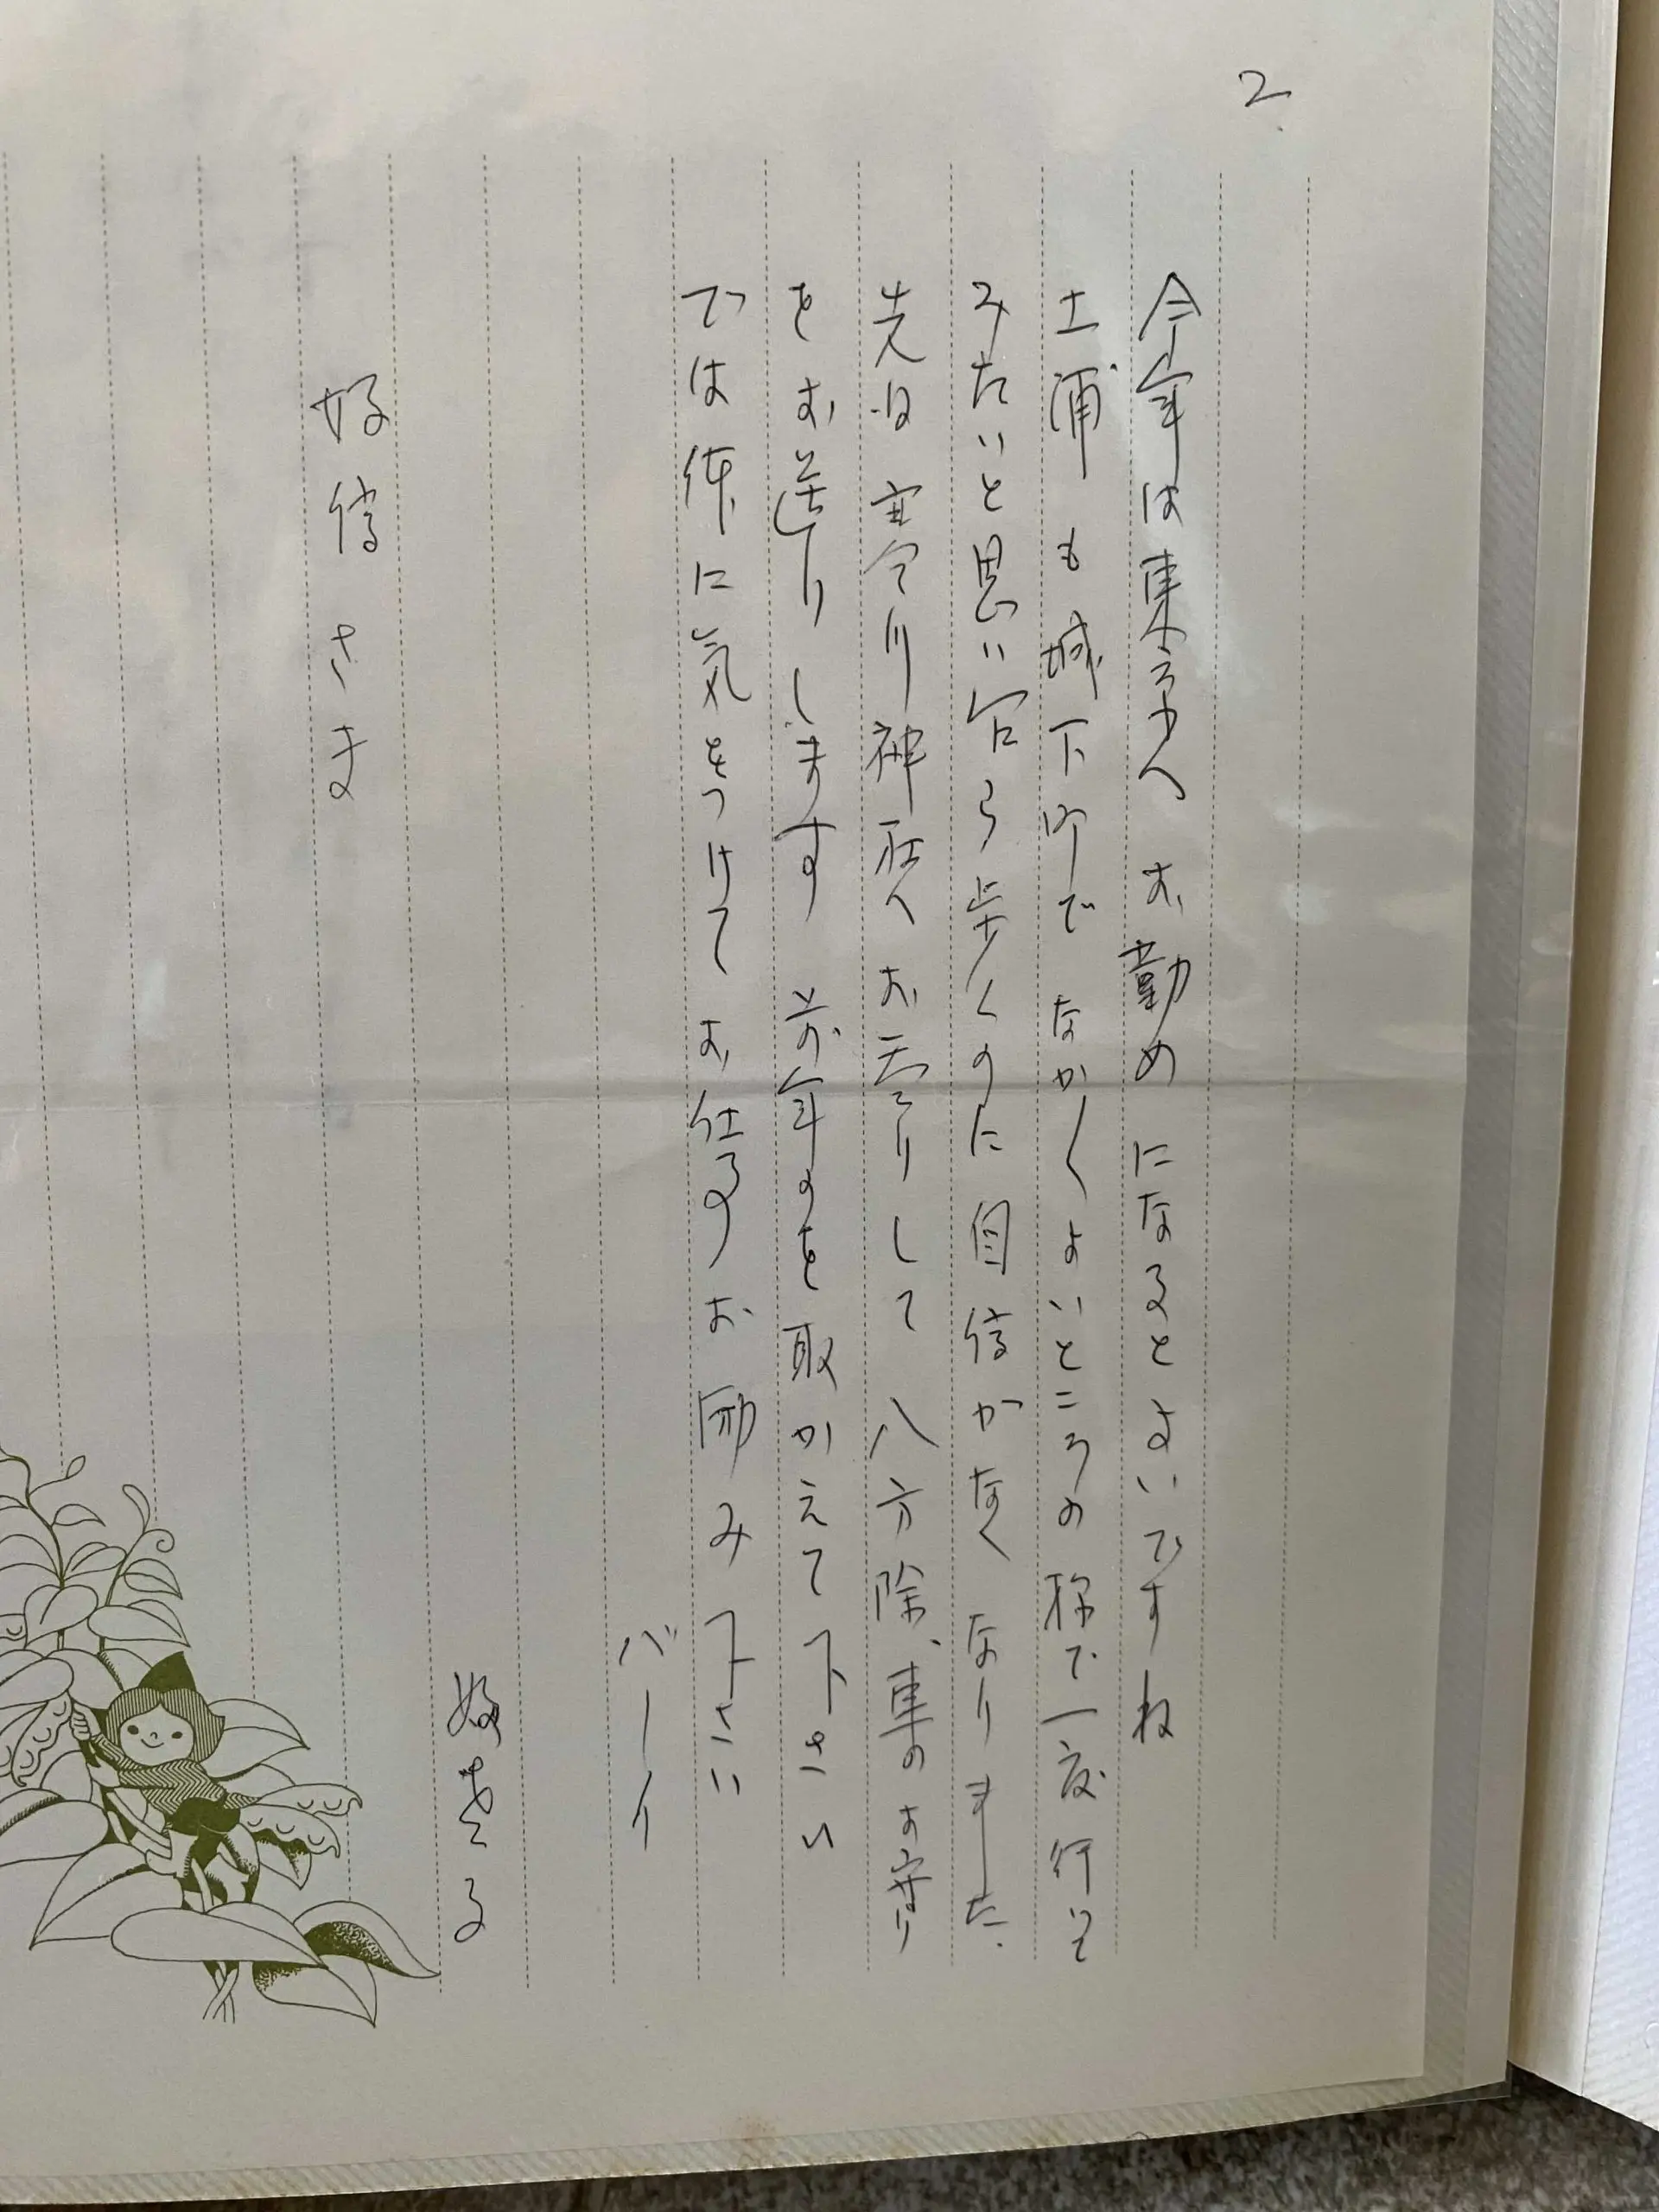 2
今年は東京へお勤めになるとよいですね
土浦も城下町でなかくよいところの様で一度行って
みたいと思い乍ら歩くのに自信がなくなりました
先日寒川神社へお参りして八方除、車のお守り
をお送りします 前年のを取かえて下さい
では体に気をつけてお仕事お励み下さい
バーイ
好信さま